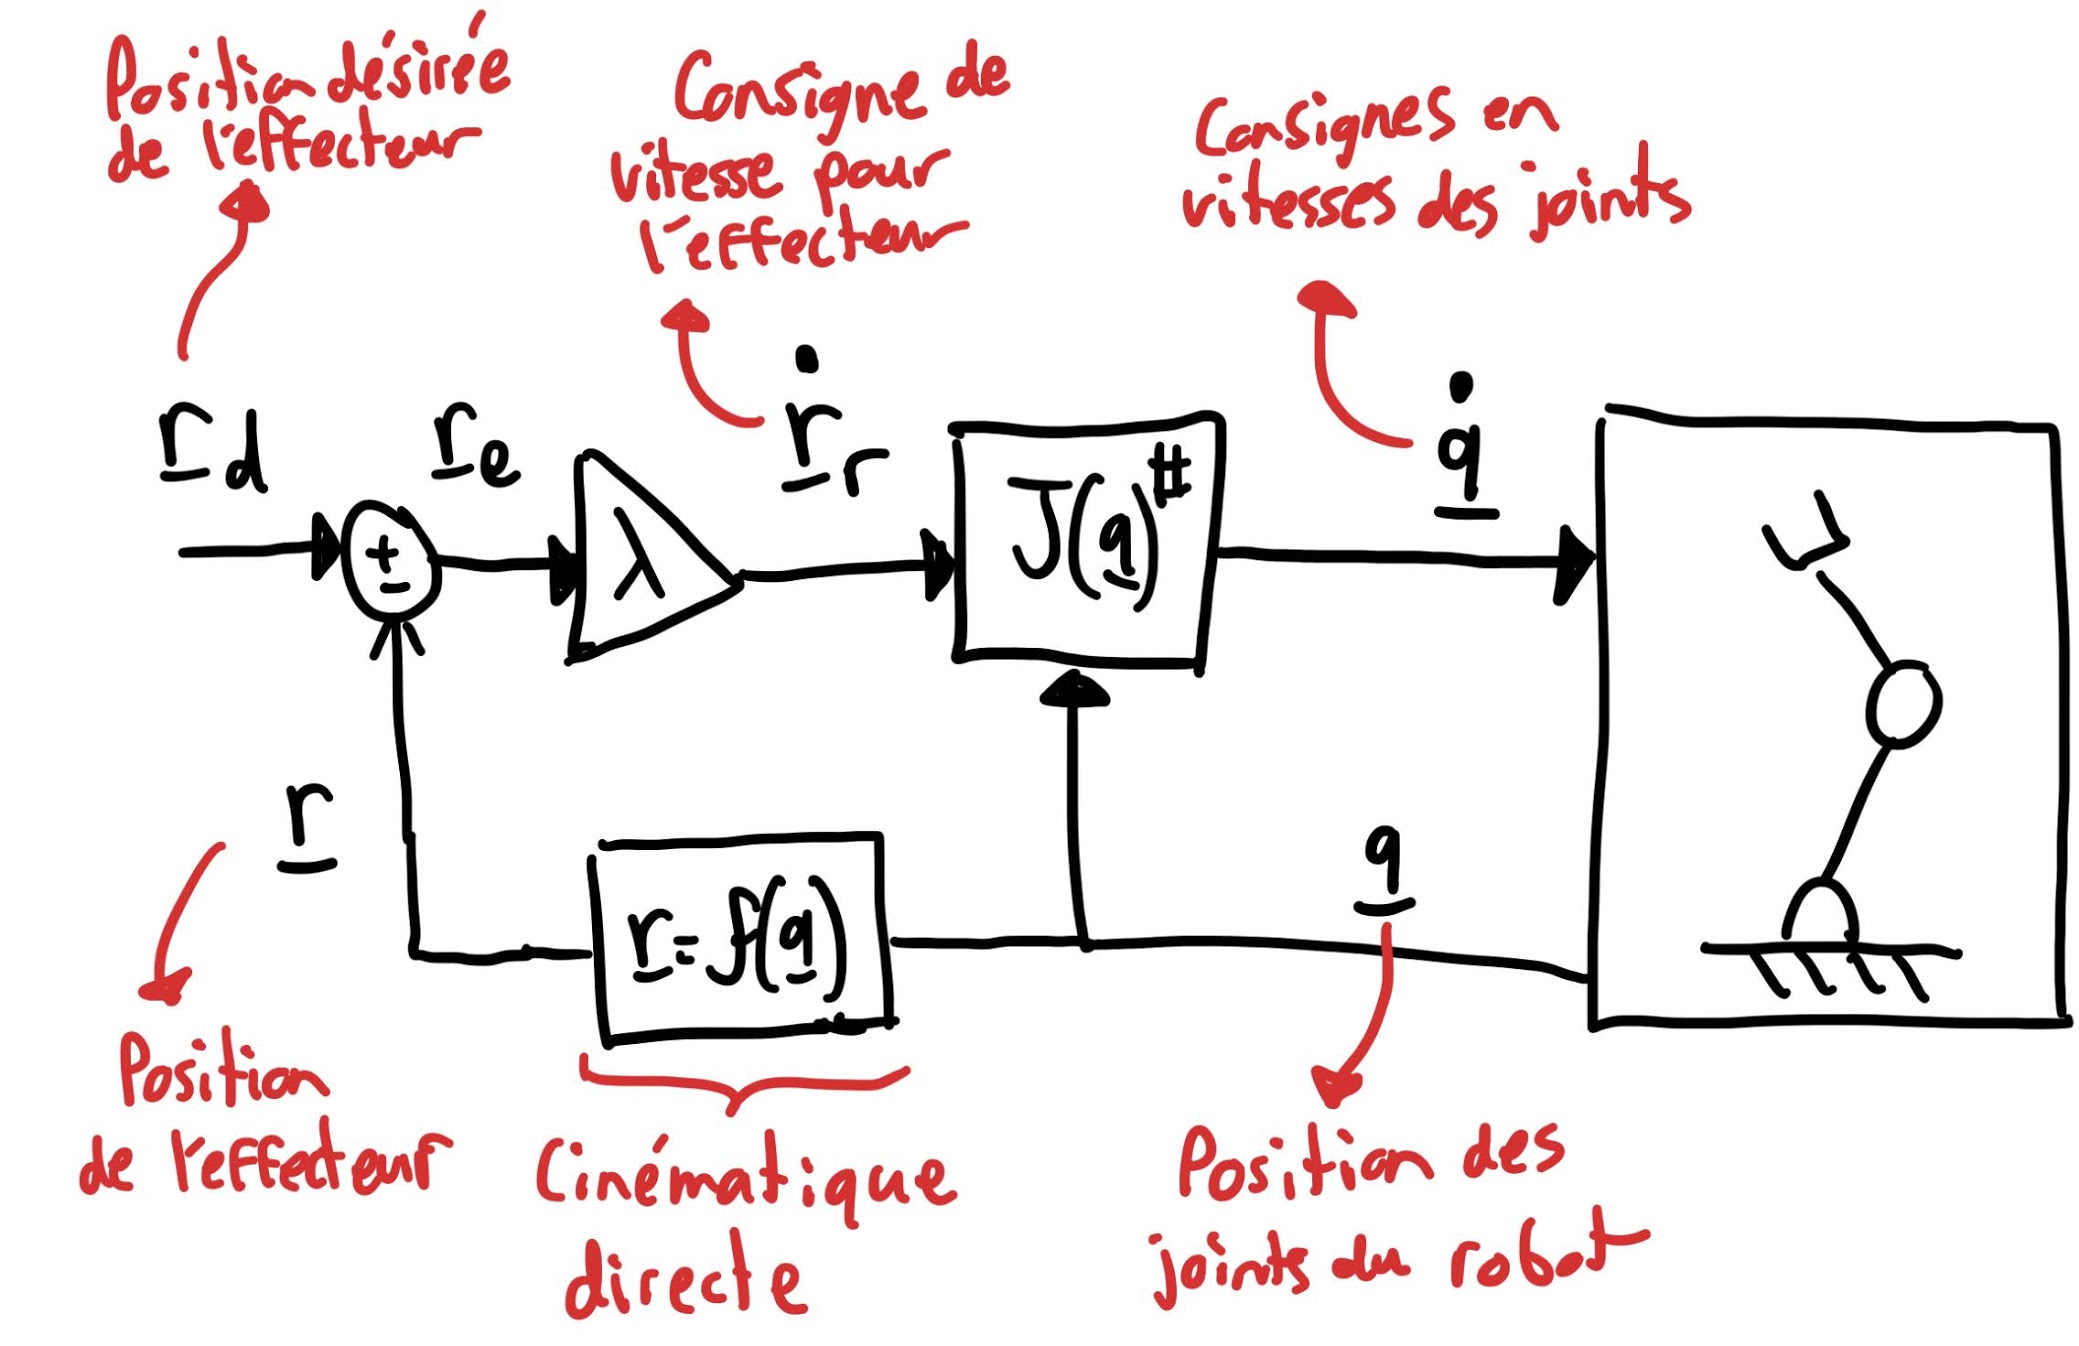 Position désirée
de l'effecteur
Consigne de
vitesse pour
l'effecteur
Consignes en
vitesses des joints
r d
r e
ṙ r
q̇
±
λ
J(q)#
r
r = f(q)
q
Position
de l'effecteur
Cinématique
directe
Position des
joints du robot